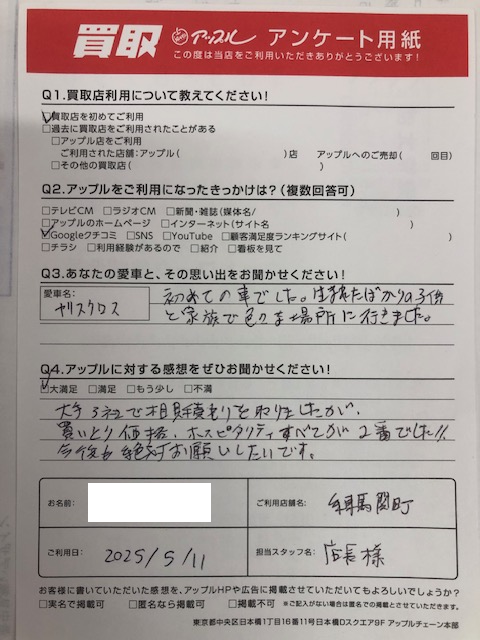 買取 アップル アンケート用紙
この度は当店をご利用いただきありがとうございます!
Q1.買取店利用について教えてください!
☑買取店を初めてご利用
□過去に買取店をご利用されたことがある
□アップル店をご利用
ご利用された店舗:アップル( )店 アップルへのご売却( 回目)
□その他の買取店( )
Q2.アップルをご利用になったきっかけは?(複数回答可)
□テレビCM □ラジオCM □新聞・雑誌(媒体名/ )
□アップルのホームページ □インターネット(サイト名 )
☑Googleクチコミ □SNS □YouTube □顧客満足度ランキングサイト( )
□チラシ □利用経験があるので □紹介 □看板を見て
Q3.あなたの愛車と、その思い出をお聞かせください!
愛車名:
ヤリスクロス
初めての車でした。生まれたばかりの子供
と家族で色々な場所に行きました。
Q4.アップルに対する感想をぜひお聞かせください!
☑大満足 □満足 □もう少し □不満
大手3社で相見積もりを取りましたが、
買いとり価格、ホスピタリティすべてが1番でした!!
今後も絶対お願いしたいです。
お名前:
ご利用店舗名: 練馬関町
ご利用日: 2025/5/11
担当スタッフ名: 店長様
お客様に書いていただいた感想を、アップルHPや広告に掲載させていただいてもよろしいでしょうか?
□実名で掲載可 □匿名なら掲載可 □掲載不可 ※ご記入がない場合は匿名での掲載とさせていただきます。
東京都中央区日本橋1丁目16番11号日本橋Dスクエア9F アップルチェーン本部